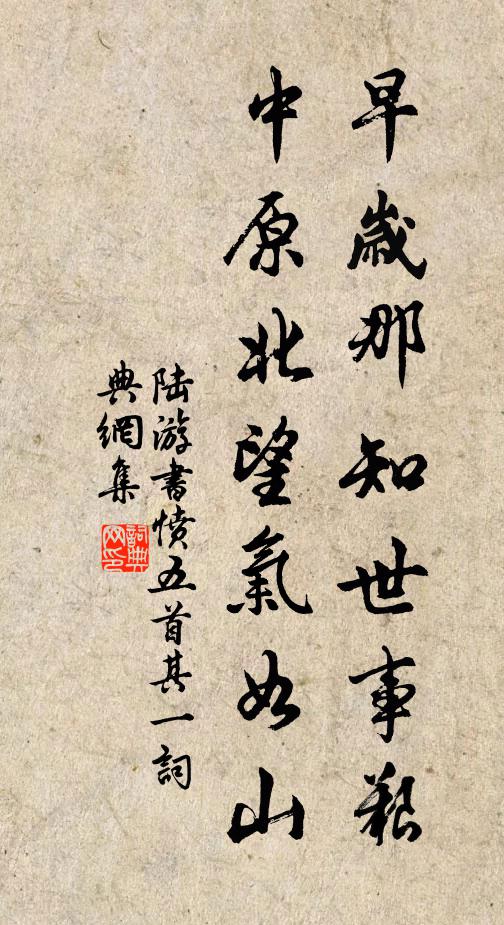 早歲那知世事艱
中原北望氣如山
陸游書憤五首其一詞
典網集
詞典
网印